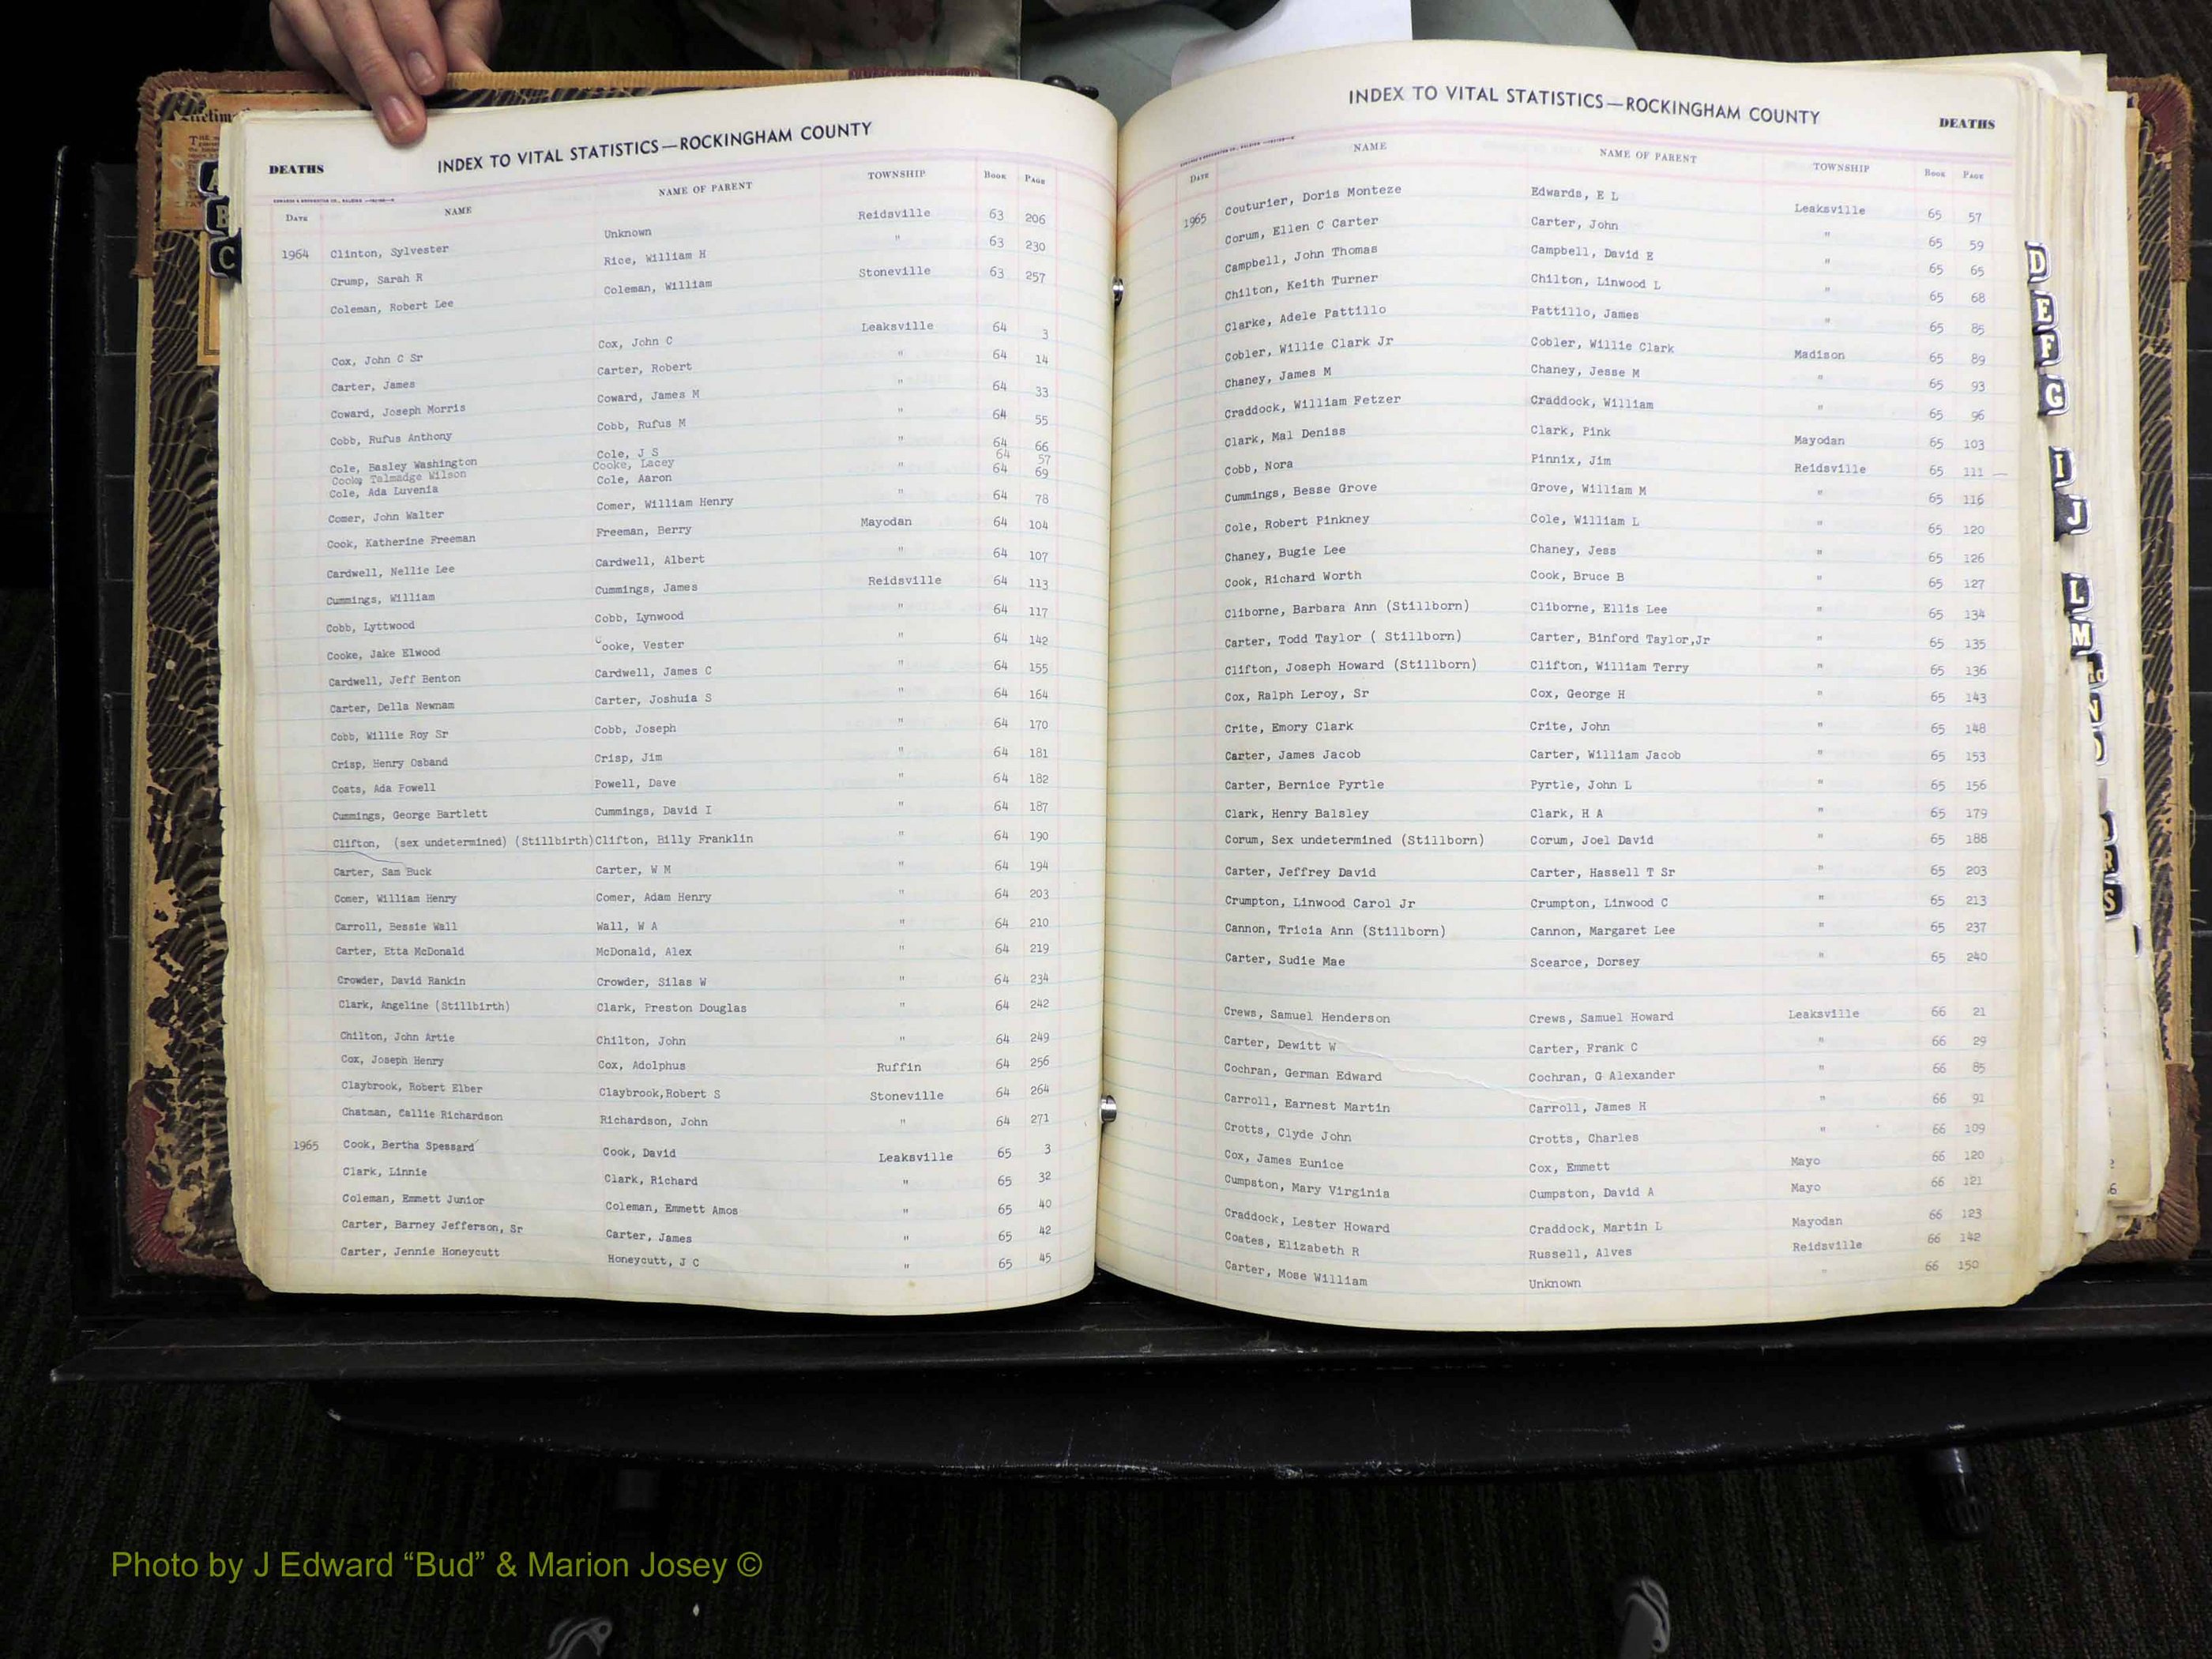 DEATHS INDEX TO VITAL STATISTICS—ROCKINGHAM COUNTY
DATE NAME NAME OF PARENT TOWNSHIP BOOK PAGE
1964 Clinton, Sylvester Unknown Reidsville 63 206
Crump, Sarah R Rice, William H " 63 230
Coleman, Robert Lee Coleman, William Stoneville 63 257
Cox, John C Sr Cox, John C Leaksville 64 3
Carter, James Carter, Robert " 64 14
Coward, Joseph Morris Coward, James M " 64 33
Cobb, Rufus Anthony Cobb, Rufus M " 64 55
Cole, Basley Washington Cole, J S " 64 66
Cooke, Talmadge Wilson Cooke, Lacey 64 57
Cole, Ada Luvenia Cole, Aaron " 64 69
Comer, John Walter Comer, William Henry " 64 78
Cook, Katherine Freeman Freeman, Berry Mayodan 64 104
Cardwell, Nellie Lee Cardwell, Albert " 64 107
Cummings, William Cummings, James Reidsville 64 113
Cobb, Lyttwood Cobb, Lynwood " 64 117
Cooke, Jake Elwood Cooke, Vester " 64 142
Cardwell, Jeff Benton Cardwell, James C " 64 155
Carter, Della Newnam Carter, Joshuia S " 64 164
Cobb, Willie Roy Sr Cobb, Joseph " 64 170
Crisp, Henry Osband Crisp, Jim " 64 181
Coats, Ada Powell Powell, Dave " 64 182
Cummings, George Bartlett Cummings, David I " 64 187
Clifton, (sex undetermined) (Stillbirth) Clifton, Billy Franklin " 64 190
Carter, Sam Buck Carter, W M " 64 194
Comer, William Henry Comer, Adam Henry " 64 203
Carroll, Bessie Wall Wall, W A " 64 210
Carter, Etta McDonald McDonald, Alex " 64 219
Crowder, David Rankin Crowder, Silas W " 64 234
Clark, Angeline (Stillbirth) Clark, Preston Douglas " 64 242
Chilton, John Artie Chilton, John " 64 249
Cox, Joseph Henry Cox, Adolphus Ruffin 64 256
Claybrook, Robert Elber Claybrook,Robert S Stoneville 64 264
Chatman, Callie Richardson Richardson, John " 64 271
1965 Cook, Bertha Spessard Cook, David Leaksville 65 3
Clark, Linnie Clark, Richard " 65 32
Coleman, Emmett Junior Coleman, Emmett Amos " 65 40
Carter, Barney Jefferson, Sr Carter, James " 65 42
Carter, Jennie Honeycutt Honeycutt, J C " 65 45
INDEX TO VITAL STATISTICS—ROCKINGHAM COUNTY DEATHS
DATE NAME NAME OF PARENT TOWNSHIP BOOK PAGE
1965 Couturier, Doris Monteze Edwards, E L Leaksville 65 57
Corum, Ellen C Carter Carter, John " 65 59
Campbell, John Thomas Campbell, David E " 65 65
Chilton, Keith Turner Chilton, Linwood L " 65 68
Clarke, Adele Pattillo Pattillo, James " 65 85
Cobler, Willie Clark Jr Cobler, Willie Clark Madison 65 89
Chaney, James M Chaney, Jesse M " 65 93
Craddock, William Fetzer Craddock, William " 65 96
Clark, Mal Deniss Clark, Pink Mayodan 65 103
Cobb, Nora Pinnix, Jim Reidsville 65 111
Cummings, Besse Grove Grove, William M " 65 116
Cole, Robert Pinkney Cole, William L " 65 120
Chaney, Bugie Lee Chaney, Jess " 65 126
Cook, Richard Worth Cook, Bruce B " 65 127
Cliborne, Barbara Ann (Stillborn) Cliborne, Ellis Lee " 65 134
Carter, Todd Taylor ( Stillborn) Carter, Binford Taylor,Jr " 65 135
Clifton, Joseph Howard (Stillborn) Clifton, William Terry " 65 136
Cox, Ralph Leroy, Sr Cox, George H " 65 143
Crite, Emory Clark Crite, John " 65 148
Carter, James Jacob Carter, William Jacob " 65 153
Carter, Bernice Pyrtle Pyrtle, John L " 65 156
Clark, Henry Balsley Clark, H A " 65 179
Corum, Sex undetermined (Stillborn) Corum, Joel David " 65 188
Carter, Jeffrey David Carter, Hassell T Sr " 65 203
Crumpton, Linwood Carol Jr Crumpton, Linwood C " 65 213
Cannon, Tricia Ann (Stillborn) Cannon, Margaret Lee " 65 237
Carter, Sudie Mae Scearce, Dorsey " 65 240
Crews, Samuel Henderson Crews, Samuel Howard Leaksville 66 21
Carter, Dewitt W Carter, Frank C " 66 29
Cochran, German Edward Cochran, G Alexander " 66 85
Carroll, Earnest Martin Carroll, James H " 66 91
Crotts, Clyde John Crotts, Charles " 66 109
Cox, James Eunice Cox, Emmett Mayo 66 120
Cumpston, Mary Virginia Cumpston, David A Mayo 66 121
Craddock, Lester Howard Craddock, Martin L Mayodan 66 123
Coates, Elizabeth R Russell, Alves Reidsville 66 142
Carter, Mose William Unknown " 66 150
A
B
C
D
E
F
G
I
J
L
M
N
R
S
Photo by J Edward “Bud” & Marion Josey ©